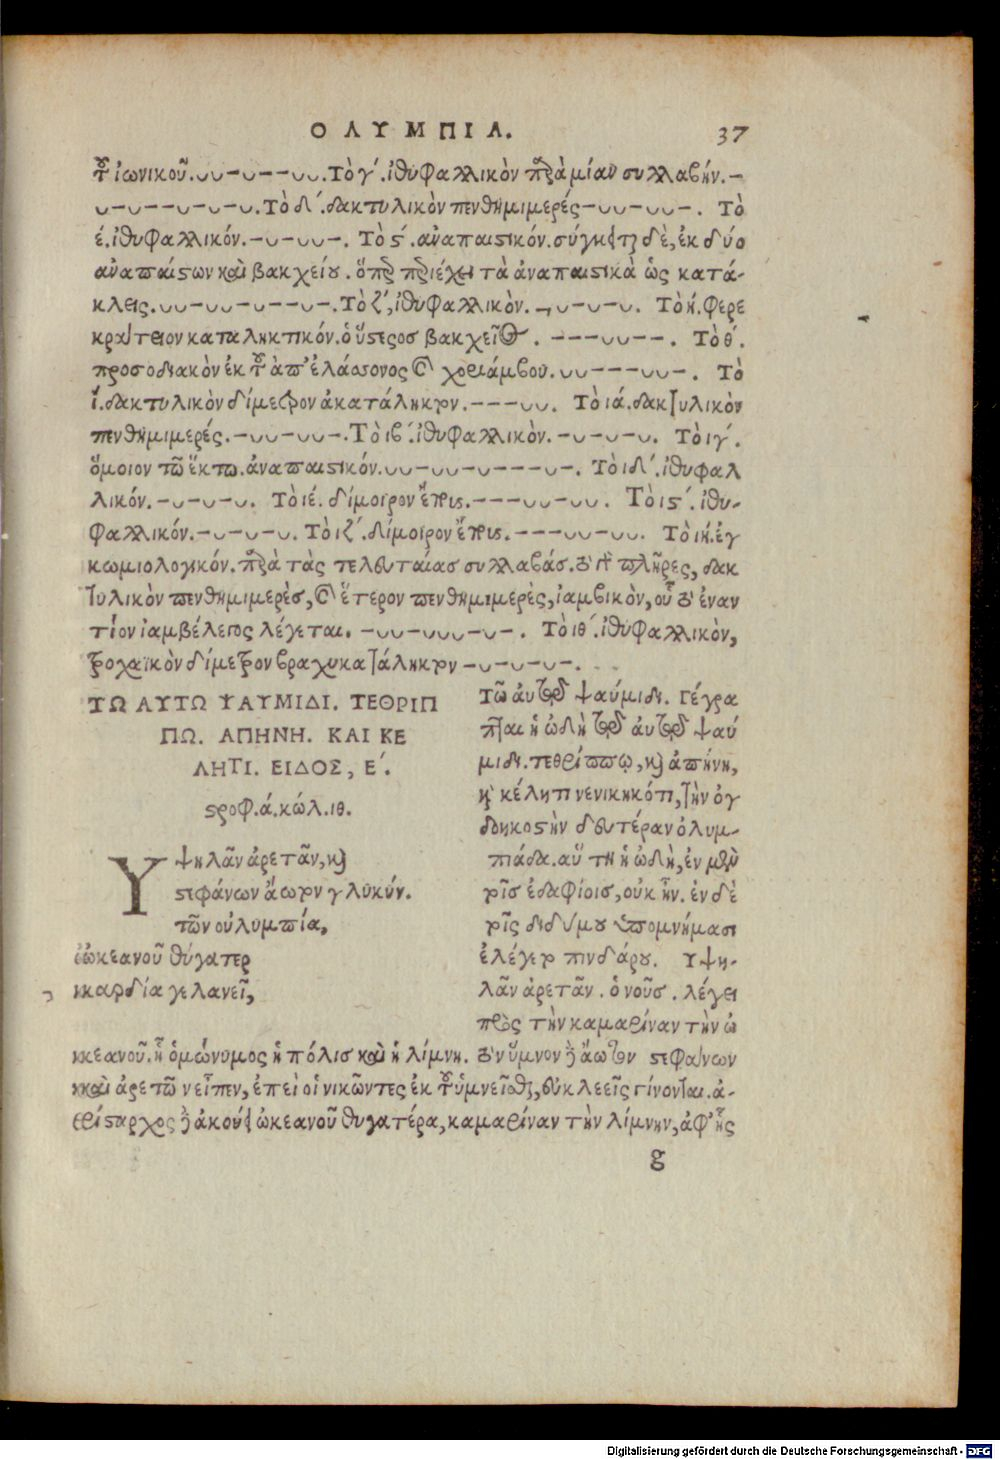 ΟΛΥΜΠΙΑ. 37
τοῦ ἰωνικοῦ.υυ-υ--υυ. Τὸ γ΄. ἰθυφαλλικὸν παρὰ μίαν συλλαβήν.-
υ-υ--υ-υ-υ. Τὸ δ΄. δακτυλικὸν πενθημιμερές-υυ-υυ-. Τὸ
έ. ἰθυφαλλικόν.-υ-υυ-. Τὸ ϛ΄. ἀναπαιστικόν. σύγκειται δὲ, ἐκ δύο
ἀναπαίστων καὶ βακχείου. ὅπερ περιέχει τὰ ἀναπαιστικὰ ὡς κατά-
κλεις.υυ-υυ-υ--υ-. Τὸ ζ΄, ἰθυφαλλικὸν.-υ-υ-υ. Τὸ ή. φερε
κράτειον καταληκτικόν. ὁ ὕστερος βακχεῖος. ---υυ--. Τὸ θ΄.
προσοδιακὸν ἐκ τοῦ ἀπ' ἐλάσσονος καὶ χοριάμβου.υυ---υυ-. Τὸ
ί. δακτυλικὸν δίμετρον ἀκατάληκτον.---υυ. Τὸ ιά. δακτυλικὸν
πενθημιμερές.-υυ-υυ-. Τὸ ιβ΄. ἰθυφαλλικὸν.-υ-υ-υ. Τὸ ιγ΄.
ὅμοιον τῶ ἕκτω. ἀναπαιστικόν.υυ-υυ-υ---υ-. Τὸ ιδ΄. ἰθυφαλ
λικόν.-υ-υ-υ. Τὸ ιέ. δίμοιρον ἔπους.---υυ-υυ. Τὸ ιϛ΄. ἰθυ-
φαλλικόν.-υ-υ-υ. Τὸ ιζ΄. δίμοιρον ἔπους.---υυ-υυ. Τὸ ιή. ἐγ
κωμιολογικόν. παρὰ τὰς τελευταίας συλλαβάς. πλῆρες, δακ
τυλικὸν πενθημιμερὲς, καὶ ἕτερον πενθημιμερὲς, ἰαμβικὸν, οὗ τὸ ἐναν
τίον ἰαμβέλεγος λέγεται. -υυ-υυυ-υ-. Τὸ ιθ΄. ἰθυφαλλικὸν,
τροχαϊκὸν δίμετρον βραχυκατάληκτον-υ-υ-υ-.
ΤΩ ΑΥΤΩ ΨΑΥΜΙΔΙ. ΤΕΘΡΙΠ
ΠΩ. ΑΠΗΝΗ. ΚΑΙ ΚΕ
ΛΗΤΙ. ΕΙΔΟΣ, Ε΄.
στροφ. ά. κώλ. ιθ.
Υψηλᾶν ἀρετᾶν, καὶ
στεφάνων ἄωτον γλυκύν.
τῶν οὐλυμπία,
ὠκεανοῦ θύγατερ
καρδία γελανεῖ,
Τῶ αὐτῶ ψαύμιδι. Γέγρα
πται ἡ ὠδὴ τῶ αὐτῶ ψαύ
μιδι. τεθρίππῳ, καὶ ἀπήνη,
καὶ κέλητι νενικηκότι, τὴν ὀγ
δοηκοστὴν δευτέραν ὀλυμ-
πιάδα. αὕτη ἡ ὠδὴ, ἐν μὲν
τοῖς ἐδαφίοις, οὐκ ἦν. ἐν δὲ
τοῖς διδύμου ὑπομνήμασι
ἐλέγετο πινδάρου. Υψη-
λᾶν ἀρετᾶν. ὁ νοῦς. λέγει
πρὸς τὴν καμαρίναν τὴν ὠ
κεανοῦ. ἢ ὁμώνυμος ἡ πόλις καὶ ἡ λίμνη. τὸν ὕμνον δὲ ἄωτον στεφάνων
καὶ ἀρετῶν εἶπεν, ἐπεὶ οἱ νικῶντες ἐκ τοῦ ὑμνεῖσθαι, εὐκλεεῖς γίνονται. ἀ-
ρίσταρχος δὲ ἀκούει ὠκεανοῦ θυγατέρα, καμαρίναν τὴν λίμνην, ἀφ' ἧς
g
Digitalisierung gefördert durch die Deutsche Forschungsgemeinschaft - DFG